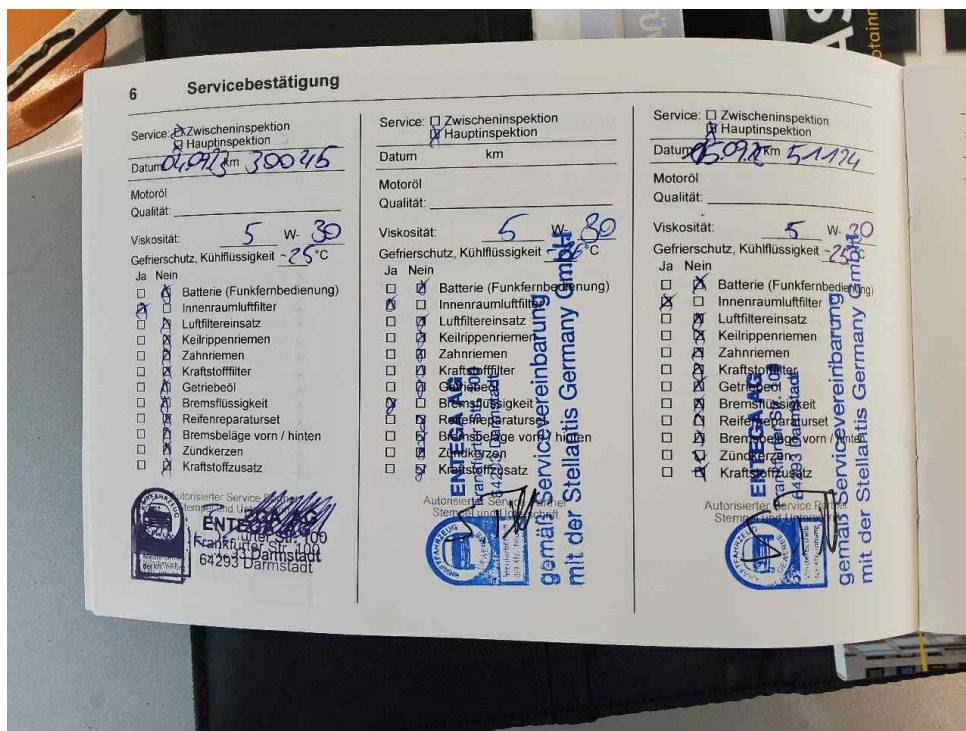 6 Servicebestätigung
Service: Zwischeninspektion
Hauptinspektion
Datum 04.09.23 km 30046
Motoröl
Qualität:
Viskosität: 5 W- 30
Gefrierschutz, Kühlflüssigkeit -25 °C
Ja Nein
Batterie (Funkfernbedienung)
Innenraumluftfilter
Luftfiltereinsatz
Keilrippenriemen
Zahnriemen
Kraftstofffilter
Getriebeöl
Bremsflüssigkeit
Reifenreparaturset
Bremsbeläge vorn / hinten
Zündkerzen
Kraftstoffzusatz
Autorisierter Service Partner
Stempel und Unterschrift
KRAFTFAHRZEUG
ENTEGA AG
Frankfurter Str. 100
64293 Darmstadt
Service: Zwischeninspektion
Hauptinspektion
Datum km
Motoröl
Qualität:
Viskosität: 5 W- 30
Gefrierschutz, Kühlflüssigkeit °C
Ja Nein
Batterie (Funkfernbedienung)
Innenraumluftfilter
Luftfiltereinsatz
Keilrippenriemen
Zahnriemen
Kraftstofffilter
Getriebeöl
Bremsflüssigkeit
Reifenreparaturset
Bremsbeläge vorn / hinten
Zündkerzen
Kraftstoffzusatz
Autorisierter Service Partner
Stempel und Unterschrift
KRAFTFAHRZEUG GEWERBE
ENTEGA AG
Frankfurter Str. 100
64293 Darmstadt
gemäß Servicevereinbarung
mit der Stellantis Germany GmbH
Service: Zwischeninspektion
Hauptinspektion
Datum km 51124
Motoröl
Qualität:
Viskosität: 5 W- 30
Gefrierschutz, Kühlflüssigkeit -25 °C
Ja Nein
Batterie (Funkfernbedienung)
Innenraumluftfilter
Luftfiltereinsatz
Keilrippenriemen
Zahnriemen
Kraftstofffilter
Getriebeöl
Bremsflüssigkeit
Reifenreparaturset
Bremsbeläge vorn / hinten
Zündkerzen
Kraftstoffzusatz
Autorisierter Service Partner
Stempel und Unterschrift
KRAFTFAHRZEUG GEWERBE
ENTEGA AG
Frankfurter Str. 100
64293 Darmstadt
gemäß Servicevereinbarung
mit der Stellantis Germany GmbH